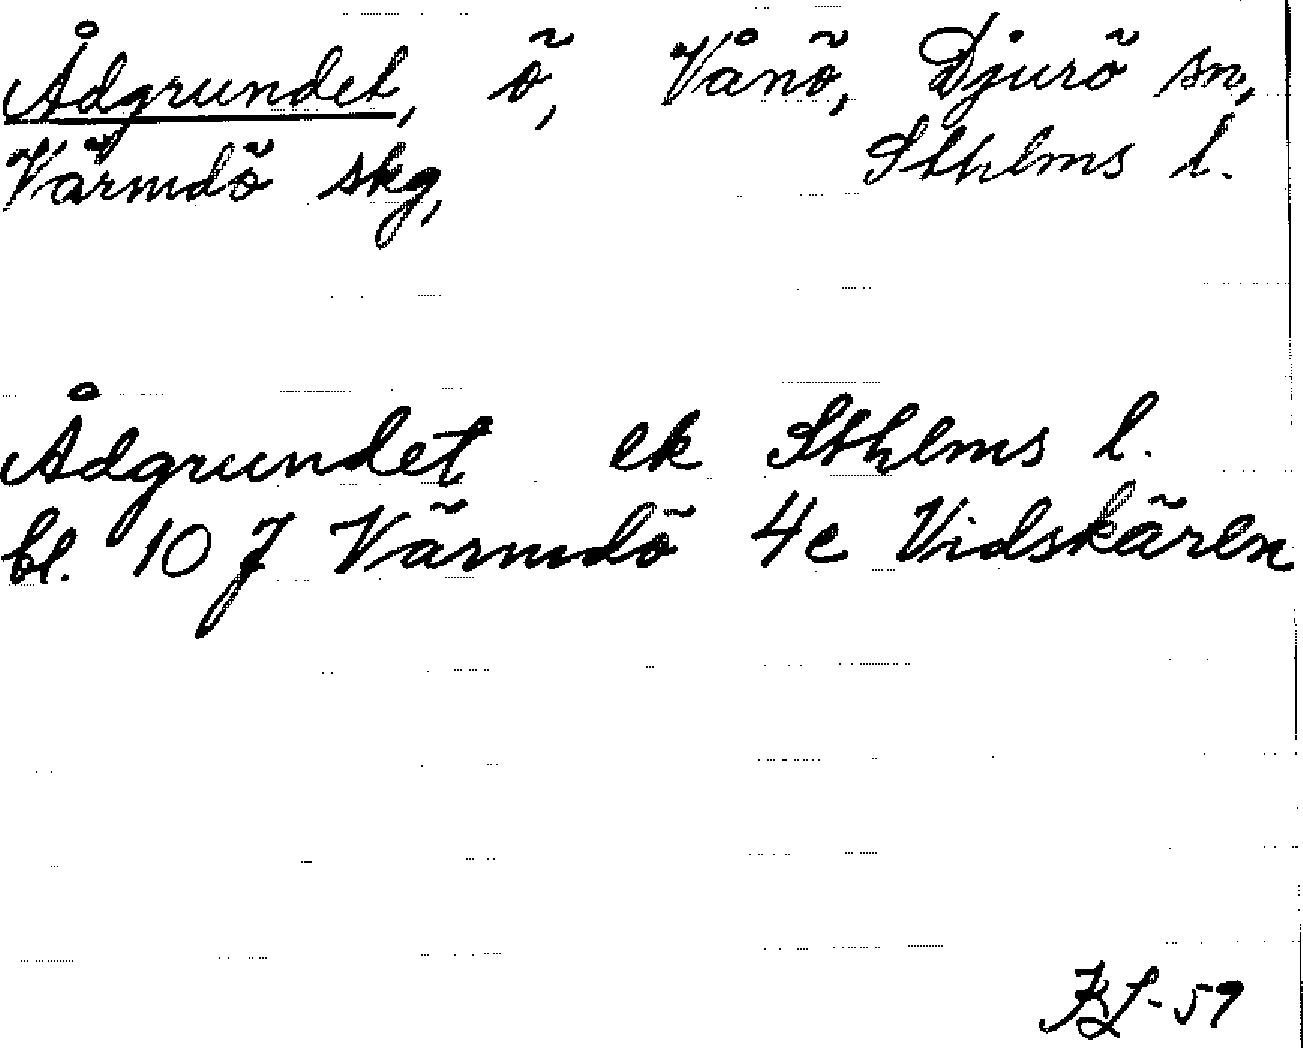 Ådgrundet, ö, Vånö, Djurö sn,
Värmdö skg, Sthlms l.
Ådgrundet ek Sthlms l.
bl. 10 J Värmdö 4e Vidskären
BL-59